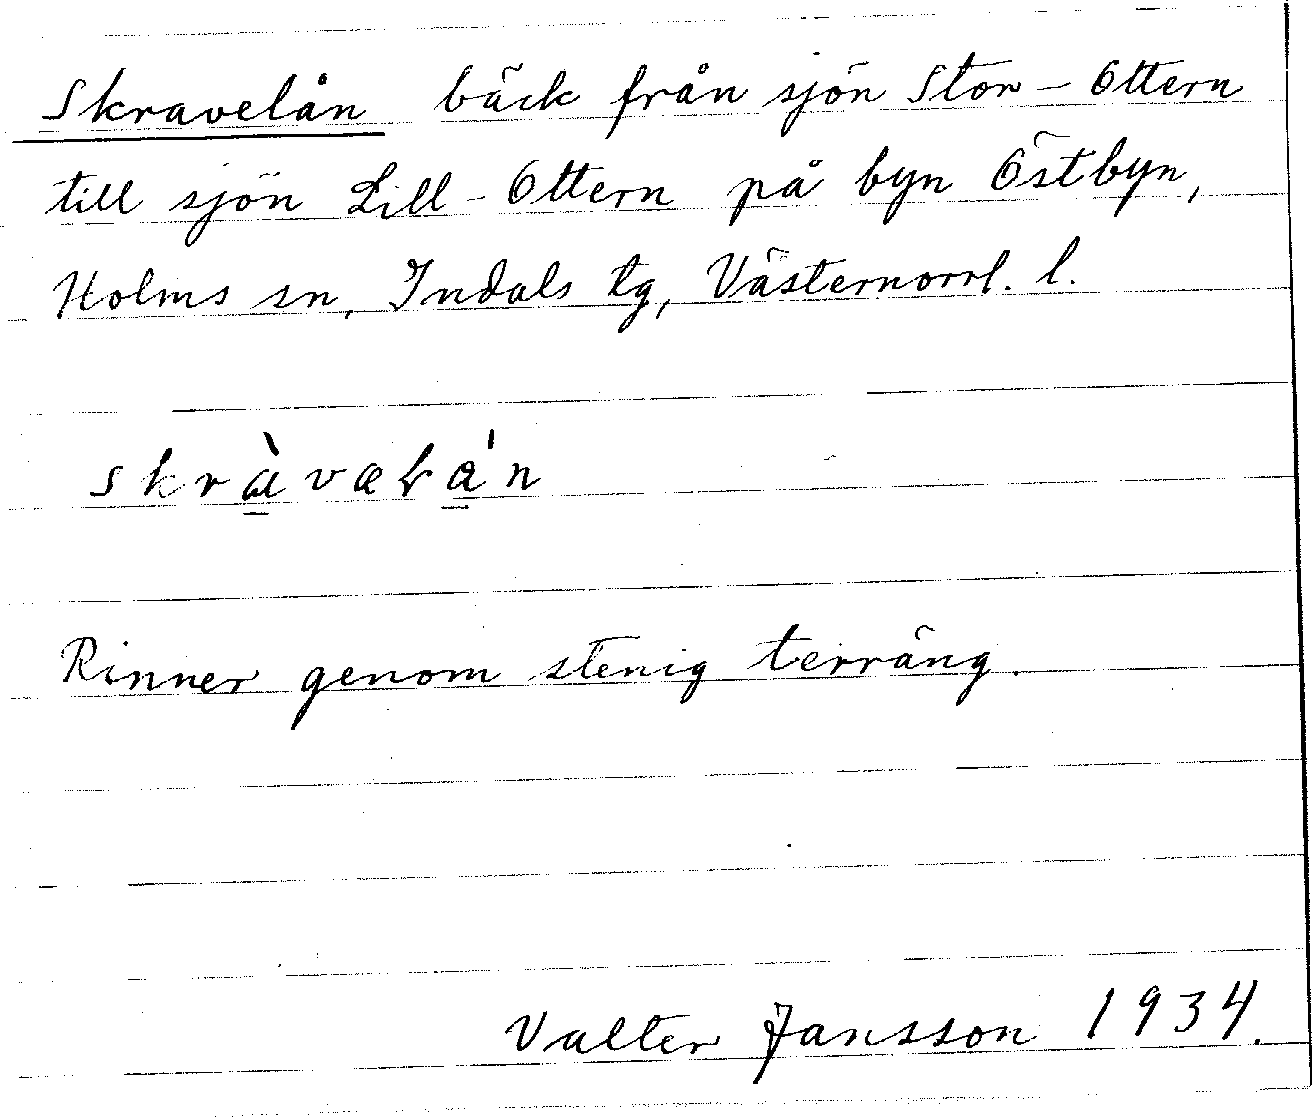 Skravelån bäck från sjön Stor-Ottern
till sjön Lill-Ottern på byn Östbyn,
Holms sn, Indals tg, Västernorrl. l.
skràvalán
Rinner genom stenig terräng.
Valter Jansson 1934.